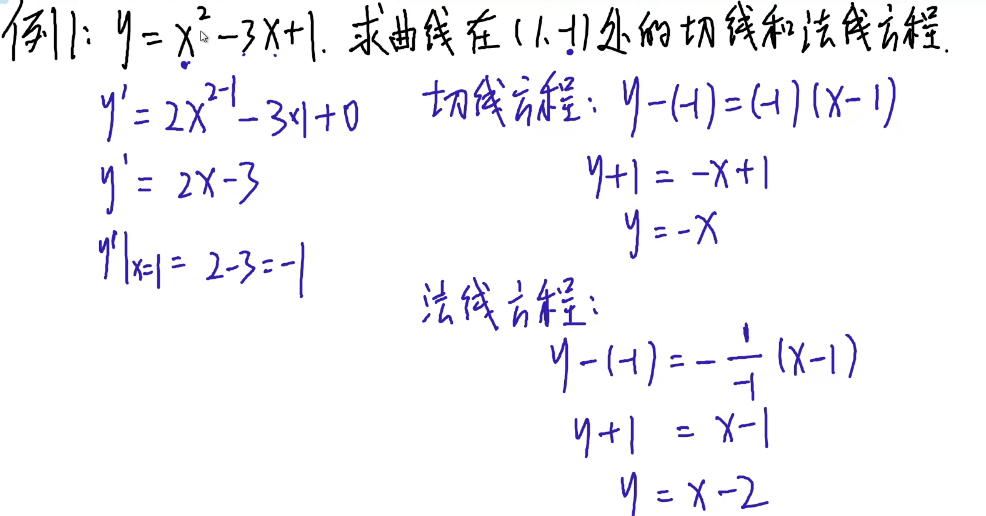 例1: y = x² - 3x + 1. 求曲线在 (1, -1) 处的切线和法线方程.
y' = 2x²⁻¹ - 3×1 + 0
y' = 2x - 3
y'|x=1 = 2 - 3 = -1
切线方程: y - (-1) = (-1)(x - 1)
y + 1 = -x + 1
y = -x
法线方程:
y - (-1) = - 1/-1 (x - 1)
y + 1 = x - 1
y = x - 2